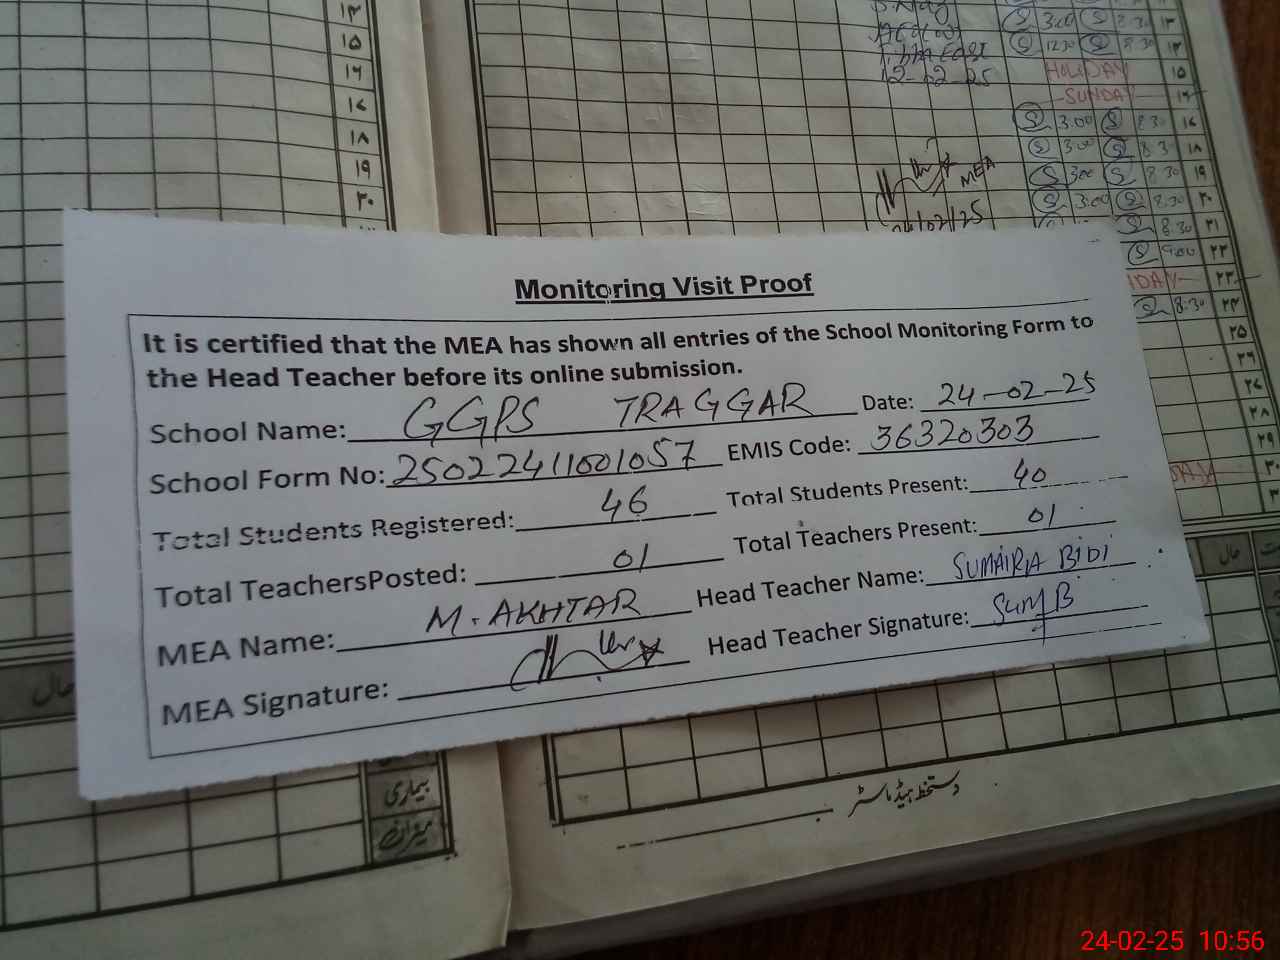 ۱۳
۱۵
۱۶
۱۸
۱۹
۲۰
12-02-25
S 3.00 S 8.30 ۱۲
S 12.30 S 8.30 ۱۳
HOLIDAY ۱۵
SUNDAY
S 3.00 S 8.30
S 3.00 S 8.30 ۱۸
S 3.00 S 8.30 ۱۹
S 3.00 S 8.30 ۲۰
S 8.30 ۲۱
S 9.00 ۲۲
NDAY ۲۳
S 8.30
۲۵
۲۶
۲۸
۲۹
۳۰
MEA
24/02/25
Monitoring Visit Proof
It is certified that the MEA has shown all entries of the School Monitoring Form to
the Head Teacher before its online submission.
School Name: GGPS TRAGGAR Date: 24-02-25
School Form No: 25022411001057 EMIS Code: 36320303
Total Students Registered: 46 Total Students Present: 40
Total TeachersPosted: 01 Total Teachers Present: 01
MEA Name: M. AKHTAR Head Teacher Name: SUMAIRA BIDI
MEA Signature: Head Teacher Signature: SumB
حال
حال
بیماری
میزان
دستخط ہیڈ ماسٹر
24-02-25 10:56